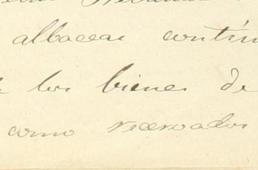 albaceas contin
los bienes de
como reservados